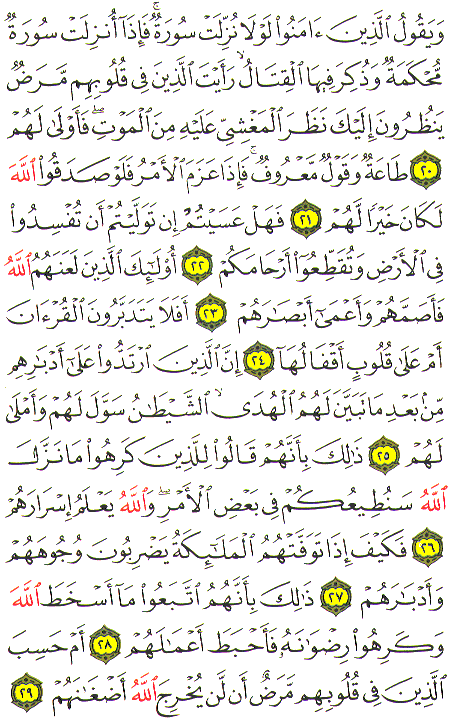 وَيَقُولُ ٱلَّذِينَ ءَامَنُواْ لَوۡلَا نُزِّلَتۡ سُورَةٞۖ فَإِذَآ أُنزِلَتۡ سُورَةٞ
مُّحۡكَمَةٞ وَذُكِرَ فِيهَا ٱلۡقِتَالُ رَأَيۡتَ ٱلَّذِينَ فِي قُلُوبِهِم مَّرَضٞ
يَنظُرُونَ إِلَيۡكَ نَظَرَ ٱلۡمَغۡشِيِّ عَلَيۡهِ مِنَ ٱلۡمَوۡتِۖ فَأَوۡلَىٰ لَهُمۡ
٢٠ طَاعَةٞ وَقَوۡلٞ مَّعۡرُوفٞۚ فَإِذَا عَزَمَ ٱلۡأَمۡرُ فَلَوۡ صَدَقُواْ ٱللَّهَ
لَكَانَ خَيۡرٗا لَّهُمۡ ٢١ فَهَلۡ عَسَيۡتُمۡ إِن تَوَلَّيۡتُمۡ أَن تُفۡسِدُواْ
فِي ٱلۡأَرۡضِ وَتُقَطِّعُوٓاْ أَرۡحَامَكُمۡ ٢٢ أُوْلَٰٓئِكَ ٱلَّذِينَ لَعَنَهُمُ ٱللَّهُ
فَأَصَمَّهُمۡ وَأَعۡمَىٰٓ أَبۡصَٰرَهُمۡ ٢٣ أَفَلَا يَتَدَبَّرُونَ ٱلۡقُرۡءَانَ
أَمۡ عَلَىٰ قُلُوبٍ أَقۡفَالُهَآ ٢٤ إِنَّ ٱلَّذِينَ ٱرۡتَدُّواْ عَلَىٰٓ أَدۡبَٰرِهِم
مِّنۢ بَعۡدِ مَا تَبَيَّنَ لَهُمُ ٱلۡهُدَى ٱلشَّيۡطَٰنُ سَوَّلَ لَهُمۡ وَأَمۡلَىٰ
لَهُمۡ ٢٥ ذَٰلِكَ بِأَنَّهُمۡ قَالُواْ لِلَّذِينَ كَرِهُواْ مَا نَزَّلَ
ٱللَّهُ سَنُطِيعُكُمۡ فِي بَعۡضِ ٱلۡأَمۡرِۖ وَٱللَّهُ يَعۡلَمُ إِسۡرَارَهُمۡ
٢٦ فَكَيۡفَ إِذَا تَوَفَّتۡهُمُ ٱلۡمَلَٰٓئِكَةُ يَضۡرِبُونَ وُجُوهَهُمۡ
وَأَدۡبَٰرَهُمۡ ٢٧ ذَٰلِكَ بِأَنَّهُمُ ٱتَّبَعُواْ مَآ أَسۡخَطَ ٱللَّهَ
وَكَرِهُواْ رِضۡوَٰنَهُۥ فَأَحۡبَطَ أَعۡمَٰلَهُمۡ ٢٨ أَمۡ حَسِبَ
ٱلَّذِينَ فِي قُلُوبِهِم مَّرَضٌ أَن لَّن يُخۡرِجَ ٱللَّهُ أَضۡغَٰنَهُمۡ ٢٩